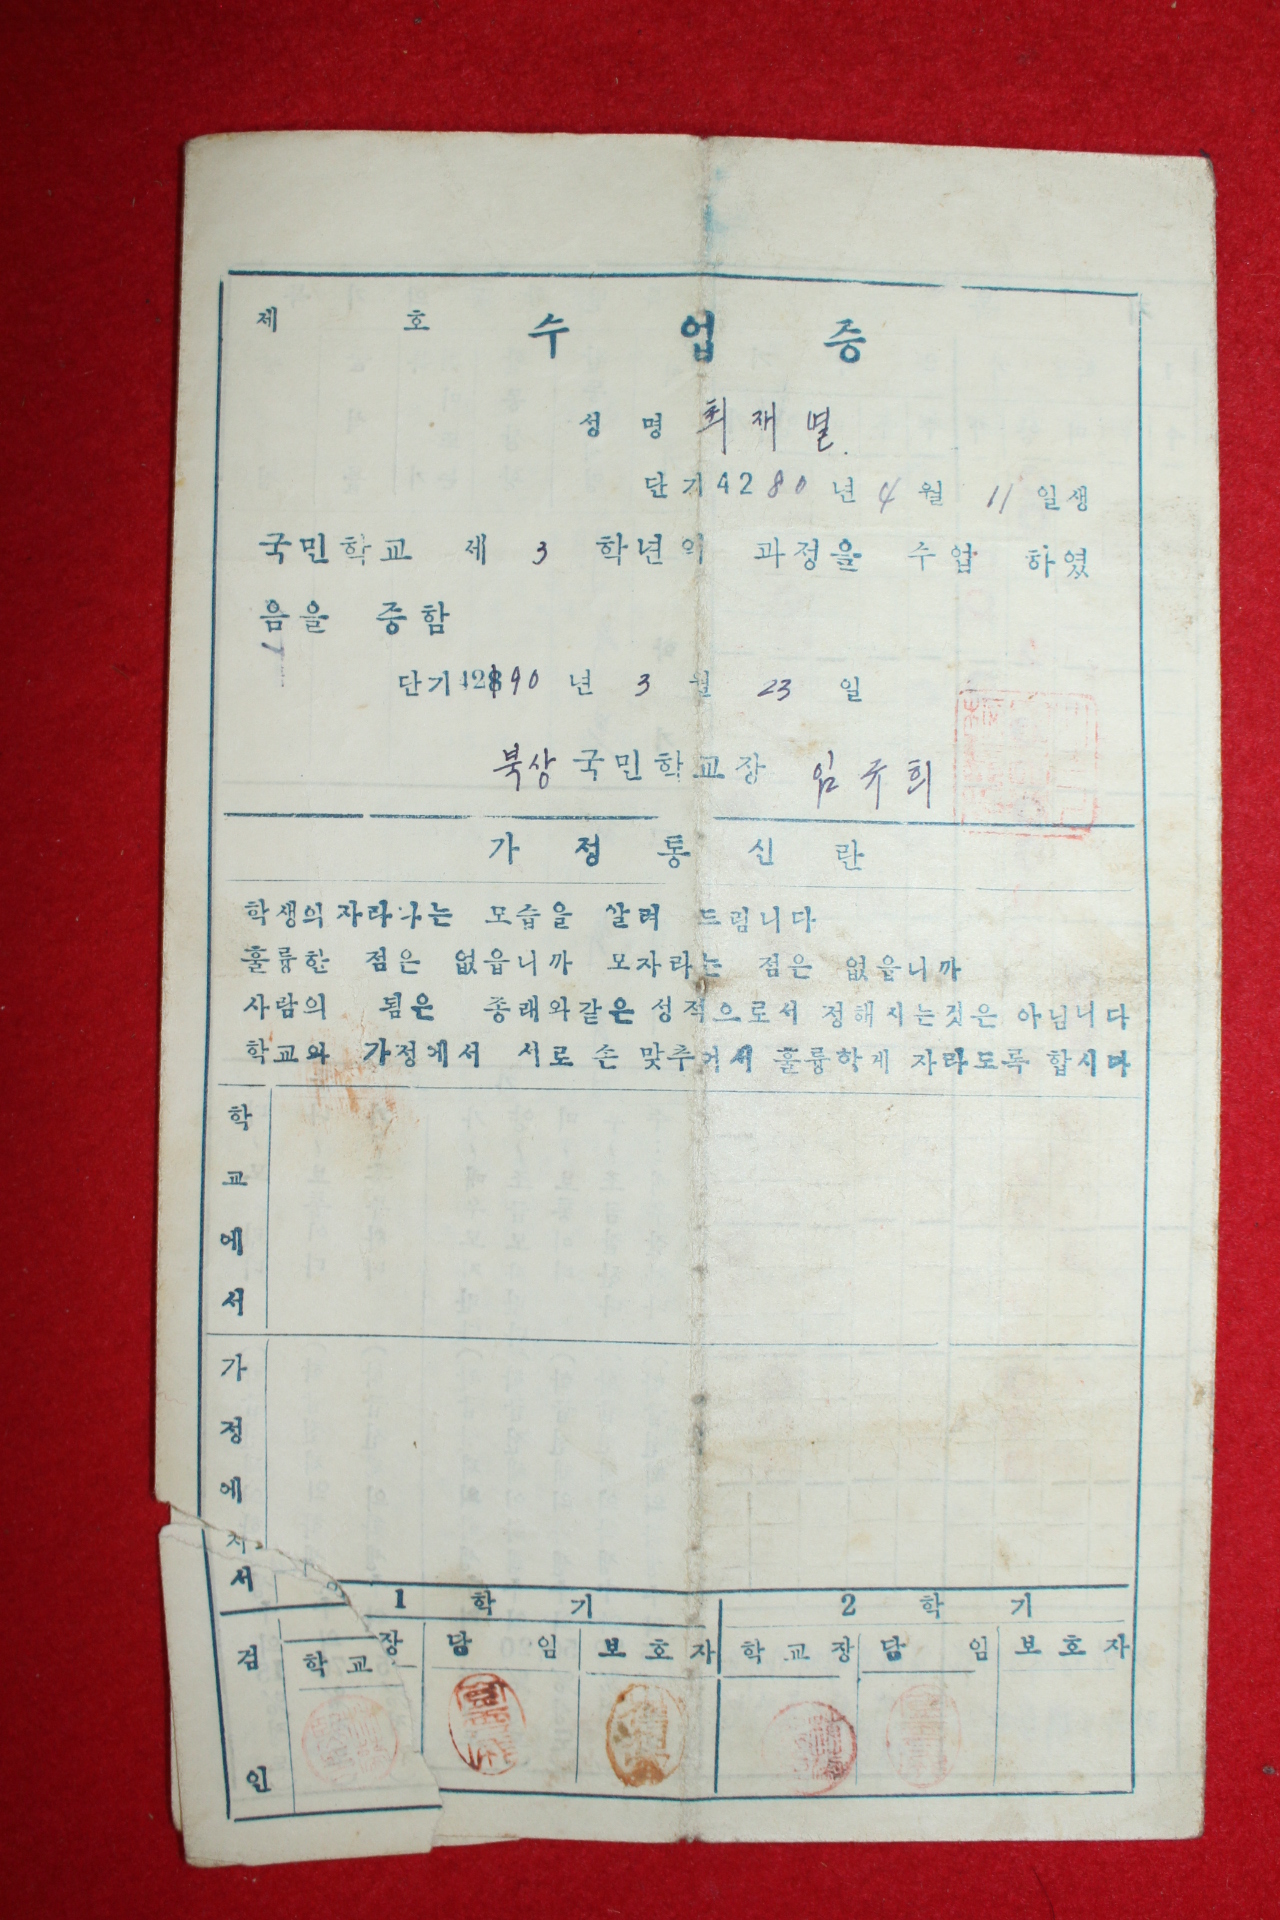 제 호 수 업 증
성 명 최재열
단기 4280 년 4 월 11 일생
국민학교 제 3 학년의 과정을 수업 하였
음을 증함
단기 4290 년 3 월 23 일
북상 국민학교장 임규희
가 정 통 신 란
학생의 자라나는 모습을 살려 드림니다
훌륭한 점은 없읍니까 모자라는 점은 없읍니까
사람의 됨은 종래와같은 성적으로서 정해지는것은 아닙니다
학교와 가정에서 서로 손 맞추어서 훌륭하게 자라도록 합시다
학교에서
가정에서
1 학 기 2 학 기
검인 학교장 담임 보호자 학교장 담임 보호자